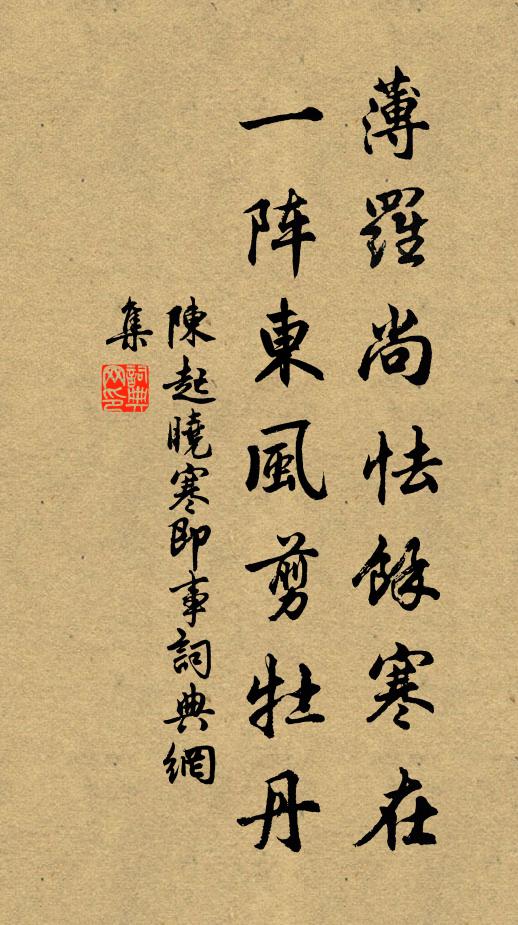 薄羅尚怯餘寒在
一阵東風剪牡丹
陳起曉寒即事詞典網
集
詞典網印